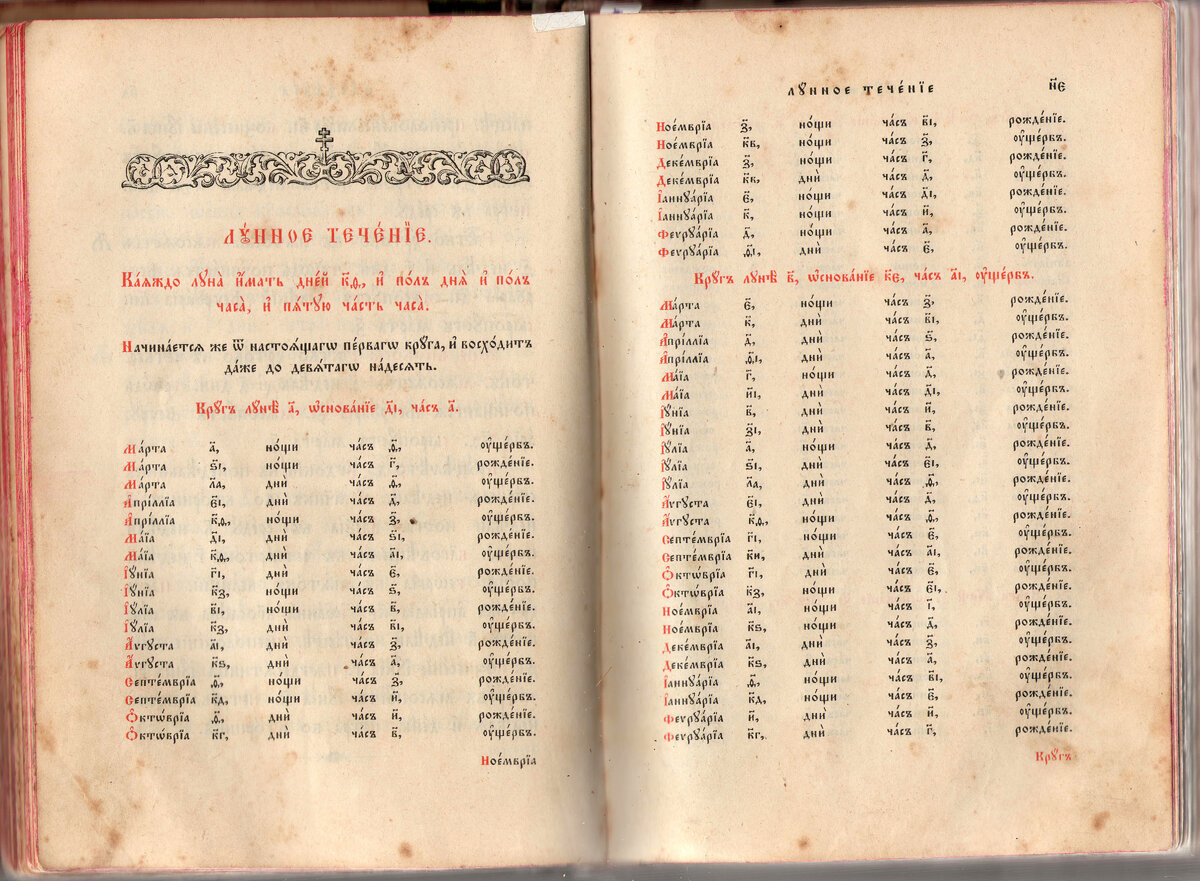 ЛꙊ́ННОЕ ТЕЧЕ́НЇЕ.
Ка́ѧждо лꙋна̀ и҆́мать дне́й к҃ѳ, и҆ по́лъ днѧ̀ и҆ по́лъ
часа̀, и҆ пѧ́тꙋю ча́сть часа̀.
Начина́етсѧ же ѿ настоѧ́щагѡ пе́рвагѡ крꙋ́га, и҆ восхо́дитъ
да́же до девѧ́тагѡ на́десѧть.
Крꙋ́гъ лꙋнѣ̀ а҃, ѡ҆снова́нїе д҃і, ча́съ а҃.
Ма́рта а҃, но́щи ча́съ ѳ҃, ᲂу҆ще́рбъ.
Ма́рта ѕ҃і, но́щи ча́съ г҃, рожде́нїе.
Ма́рта л҃а, дни̑ ча́съ ѳ҃, ᲂу҆ще́рбъ.
А҆прі́ллїа є҃і, дни̑ ча́съ д҃, рожде́нїе.
А҆прі́ллїа к҃ѳ, но́щи ча́съ з҃, ᲂу҆ще́рбъ.
Ма́їа д҃і, дни̑ ча́съ ѕ҃і, рожде́нїе.
Ма́їа к҃ѳ, дни̑ ча́съ а҃і, ᲂу҆ще́рбъ.
І҆ꙋ́нїа г҃і, дни̑ ча́съ є҃, рожде́нїе.
І҆ꙋ́нїа к҃з, но́щи ча́съ ѕ҃, ᲂу҆ще́рбъ.
І҆ꙋ́лїа в҃і, но́щи ча́съ в҃, рожде́нїе.
І҆ꙋ́лїа к҃з, дни̑ ча́съ в҃і, ᲂу҆ще́рбъ.
А҆́ѵгꙋста а҃і, дни̑ ча́съ з҃, рожде́нїе.
А҆́ѵгꙋста к҃ѕ, дни̑ ча́съ а҃, ᲂу҆ще́рбъ.
Септе́мврїа ѳ҃, но́щи ча́съ з҃, рожде́нїе.
Септе́мврїа к҃д, но́щи ча́съ и҃, ᲂу҆ще́рбъ.
Ѻ҆ктѡ́врїа ѳ҃, дни̑ ча́съ и҃, рожде́нїе.
Ѻ҆ктѡ́врїа к҃г, дни̑ ча́съ в҃, ᲂу҆ще́рбъ.
Ное́мврїа
ЛꙊННОЕ ТЕЧЕ́НЇЕ н҃є
Ное́мврїа з҃, но́щи ча́съ в҃і, рожде́нїе.
Ное́мврїа к҃в, но́щи ча́съ з҃, ᲂу҆ще́рбъ.
Деке́мврїа з҃, но́щи ча́съ г҃, рожде́нїе.
Деке́мврїа к҃к, дни̑ ча́съ д҃, ᲂу҆ще́рбъ.
І҆аннꙋа́рїа є҃, но́щи ча́съ д҃і, рожде́нїе.
І҆аннꙋа́рїа к҃, но́щи ча́съ и҃, ᲂу҆ще́рбъ.
Феврꙋа́рїа д҃, но́щи ча́съ а҃, рожде́нїе.
Феврꙋа́рїа ѳ҃і, дни̑ ча́съ є҃, ᲂу҆ще́рбъ.
Крꙋ́гъ лꙋнѣ̀ в҃, ѡ҆снова́нїе к҃є, ча́съ а҃і, ᲂу҆ще́рбъ.
Ма́рта є҃, но́щи ча́съ з҃, рожде́нїе.
Ма́рта к҃, дни̑ ча́съ в҃і, ᲂу҆ще́рбъ.
А҆прі́ллїа д҃, дни̑ ча́съ ѕ҃, рожде́нїе.
А҆прі́ллїа ѳ҃і, дни̑ ча́съ а҃, ᲂу҆ще́рбъ.
Ма́їа г҃, но́щи ча́съ д҃, рожде́нїе.
Ма́їа и҃і, дни̑ ча́съ д҃і, ᲂу҆ще́рбъ.
І҆ꙋ́нїа в҃, дни̑ ча́съ и҃, рожде́нїе.
І҆ꙋ́нїа з҃і, дни̑ ча́съ в҃, ᲂу҆ще́рбъ.
І҆ꙋ́лїа а҃, но́щи ча́съ д҃, рожде́нїе.
І҆ꙋ́лїа ѕ҃і, дни̑ ча́съ є҃і, ᲂу҆ще́рбъ.
І҆ꙋ́лїа л҃а, дни̑ ча́съ ѳ҃, рожде́нїе.
А҆́ѵгꙋста є҃і, дни̑ ча́съ д҃, ᲂу҆ще́рбъ.
А҆́ѵгꙋста к҃ѳ, но́щи ча́съ ѳ҃, рожде́нїе.
Септе́мврїа г҃і, но́щи ча́съ є҃, ᲂу҆ще́рбъ.
Септе́мврїа к҃и, дни̑ ча́съ а҃і, рожде́нїе.
Ѻ҆ктѡ́врїа г҃і, дни̑ ча́съ є҃, ᲂу҆ще́рбъ.
Ѻ҆ктѡ́врїа к҃з, но́щи ча́съ є҃і, рожде́нїе.
Ное́мврїа а҃і, но́щи ча́съ г҃, ᲂу҆ще́рбъ.
Ное́мврїа к҃ѕ, но́щи ча́съ д҃, рожде́нїе.
Деке́мврїа а҃і, дни̑ ча́съ з҃, ᲂу҆ще́рбъ.
Деке́мврїа к҃ѕ, дни̑ ча́съ а҃, рожде́нїе.
І҆аннꙋа́рїа ѳ҃, но́щи ча́съ в҃і, ᲂу҆ще́рбъ.
І҆аннꙋа́рїа к҃д, но́щи ча́съ є҃, рожде́нїе.
Феврꙋа́рїа и҃, дни̑ ча́съ и҃, ᲂу҆ще́рбъ.
Феврꙋа́рїа к҃г, дни̑ ча́съ г҃, рожде́нїе.
Крꙋ́гъ